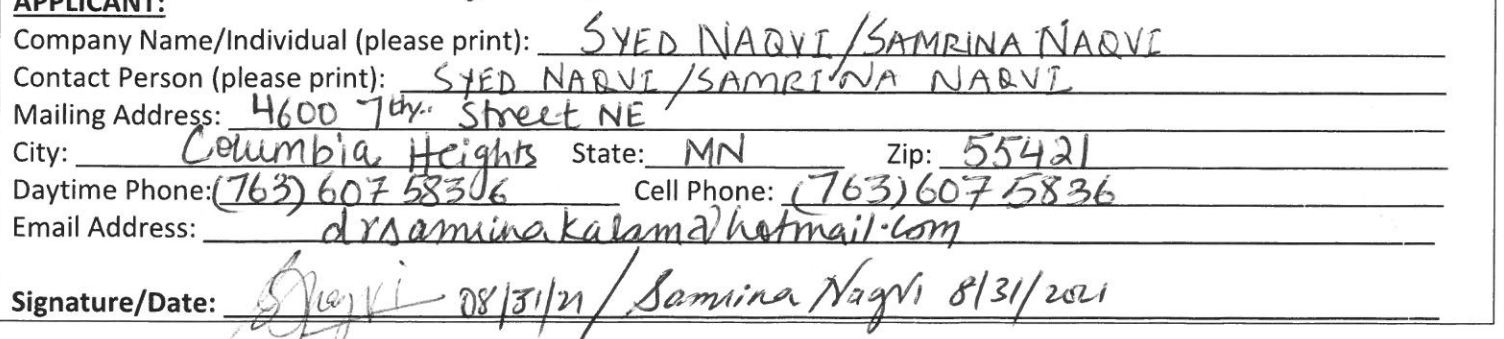 APPLICANT:
Company Name/Individual (please print): SYED NAQVI/SAMRINA NAQVI
Contact Person (please print): SYED NAQVI/SAMRINA NAQVI
Mailing Address: 4600 7th Street NE
City: Columbia Heights State: MN Zip: 55421
Daytime Phone:(763) 607 5836 Cell Phone: (763)607 5836
Email Address: drsamrinakalam@hotmail.com
Signature/Date: SNaqvi 08/31/21 / Samrina Naqvi 8/31/2021